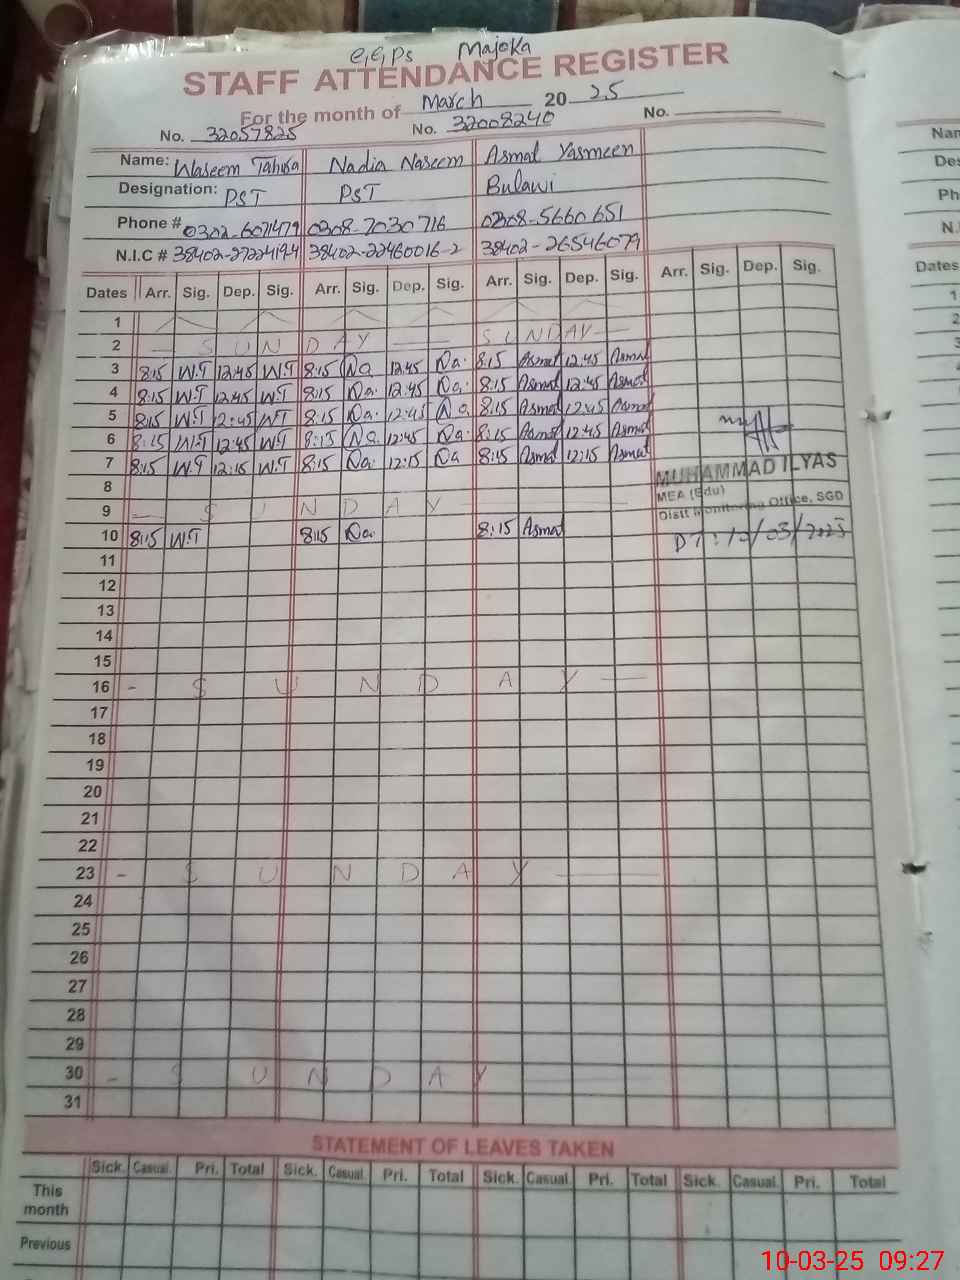 G,G,Ps Majoka
STAFF ATTENDANCE REGISTER
For the month of March 2025
No. 32057825 No. 32008240 No.
Name: Waseem Tahira Nadia Naseem Asmat Yasmeen
Designation: PST PST Bulawi
Phone # 0302-6071479 0308-7030716 0308-5660651
N.I.C # 38402-2722419-4 38402-22460016-2 38402-26546079
Dates Arr. Sig. Dep. Sig. Arr. Sig. Dep. Sig. Arr. Sig. Dep. Sig. Arr. Sig. Dep. Sig.
1
2 - SUNDAY - SUNDAY -
3 8:15 W.T 12:45 W.T 8:15 Na. 12:45 Na. 8:15 Asmat 12:45 Asmat
4 8:15 W.T 12:45 W.T 8:15 Na. 12:45 Na. 8:15 Asmat 12:45 Asmat
5 8:15 W.T 12:45 W.T 8:15 Na. 12:45 Na. 8:15 Asmat 12:45 Asmat
6 8:15 W.T 12:45 W.T 8:15 Na. 12:45 Na. 8:15 Asmat 12:45 Asmat
7 8:15 W.T 12:15 W.T 8:15 Na. 12:15 Na 8:15 Asmat 12:15 Asmat
MUHAMMAD ILYAS
8
MEA (Edu)
9 - SUNDAY -
Distt Monitoring Office, SGD
10 8:15 W.T 8:15 Na. 8:15 Asmat
DT: 10/03/2025
11
12
13
14
15
16 - SUNDAY -
17
18
19
20
21
22
23 - SUNDAY -
24
25
26
27
28
29
30 - SUNDAY -
31
STATEMENT OF LEAVES TAKEN
Sick. Casual. Pri. Total Sick. Casual. Pri. Total Sick. Casual. Pri. Total Sick. Casual. Pri. Total
This month
Previous
Nam
Des
Ph
N.I
Dates
1
2
10-03-25 09:27